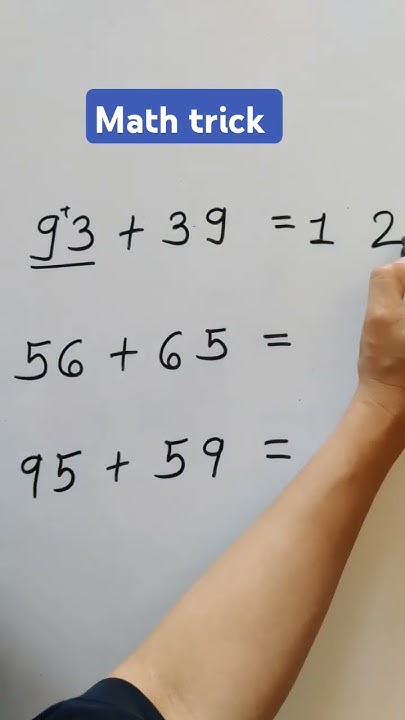 Math trick
9⁺3 + 39 = 1 2
56 + 65 =
95 + 59 =